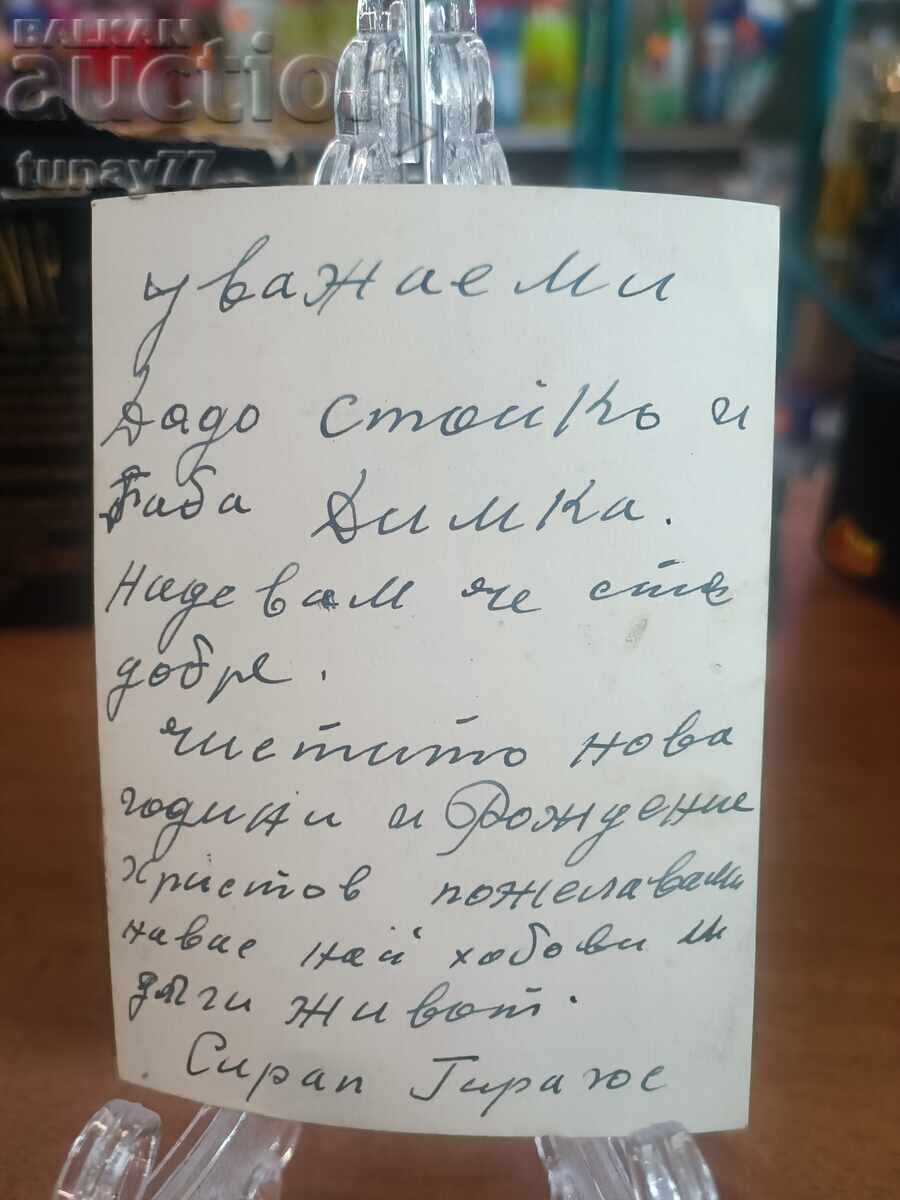 BALKAN
auction
tunay77
уважаеми
Дядо Стойкъ и
Баба Димка.
Надевам че сте
добре.
Чистито нова
годины и Рождение
Христов пожелавами
навас най хобови и
дъги живот.
Сирап Гирагос